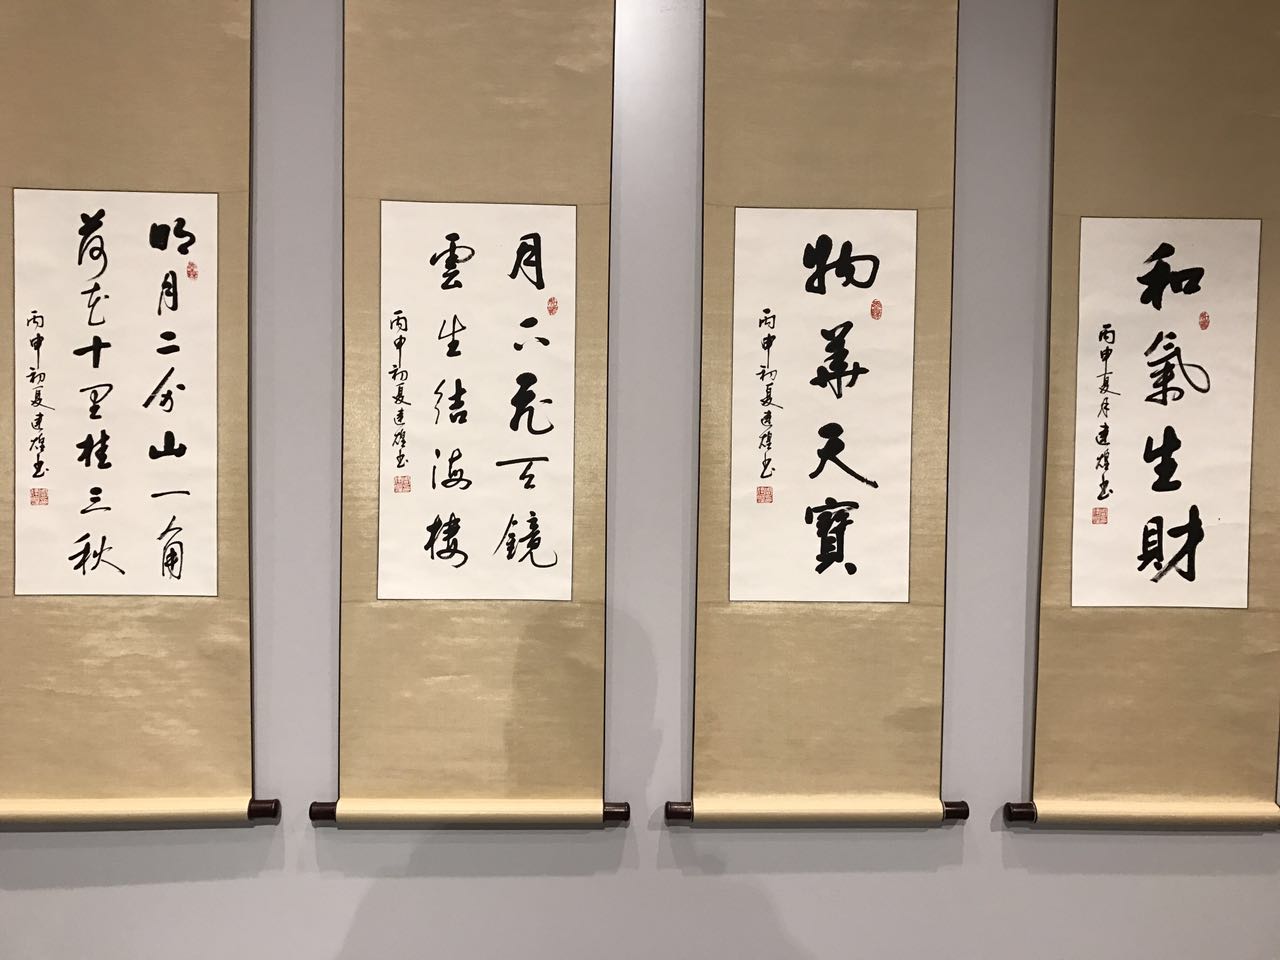 和氣生財
丙申夏月建煌書
物華天寶
丙申初夏建煌書
月下飛天鏡
雲生結海樓
丙申初夏建煌書
明月二分山一角
荷花十里桂三秋
丙申初夏建煌書